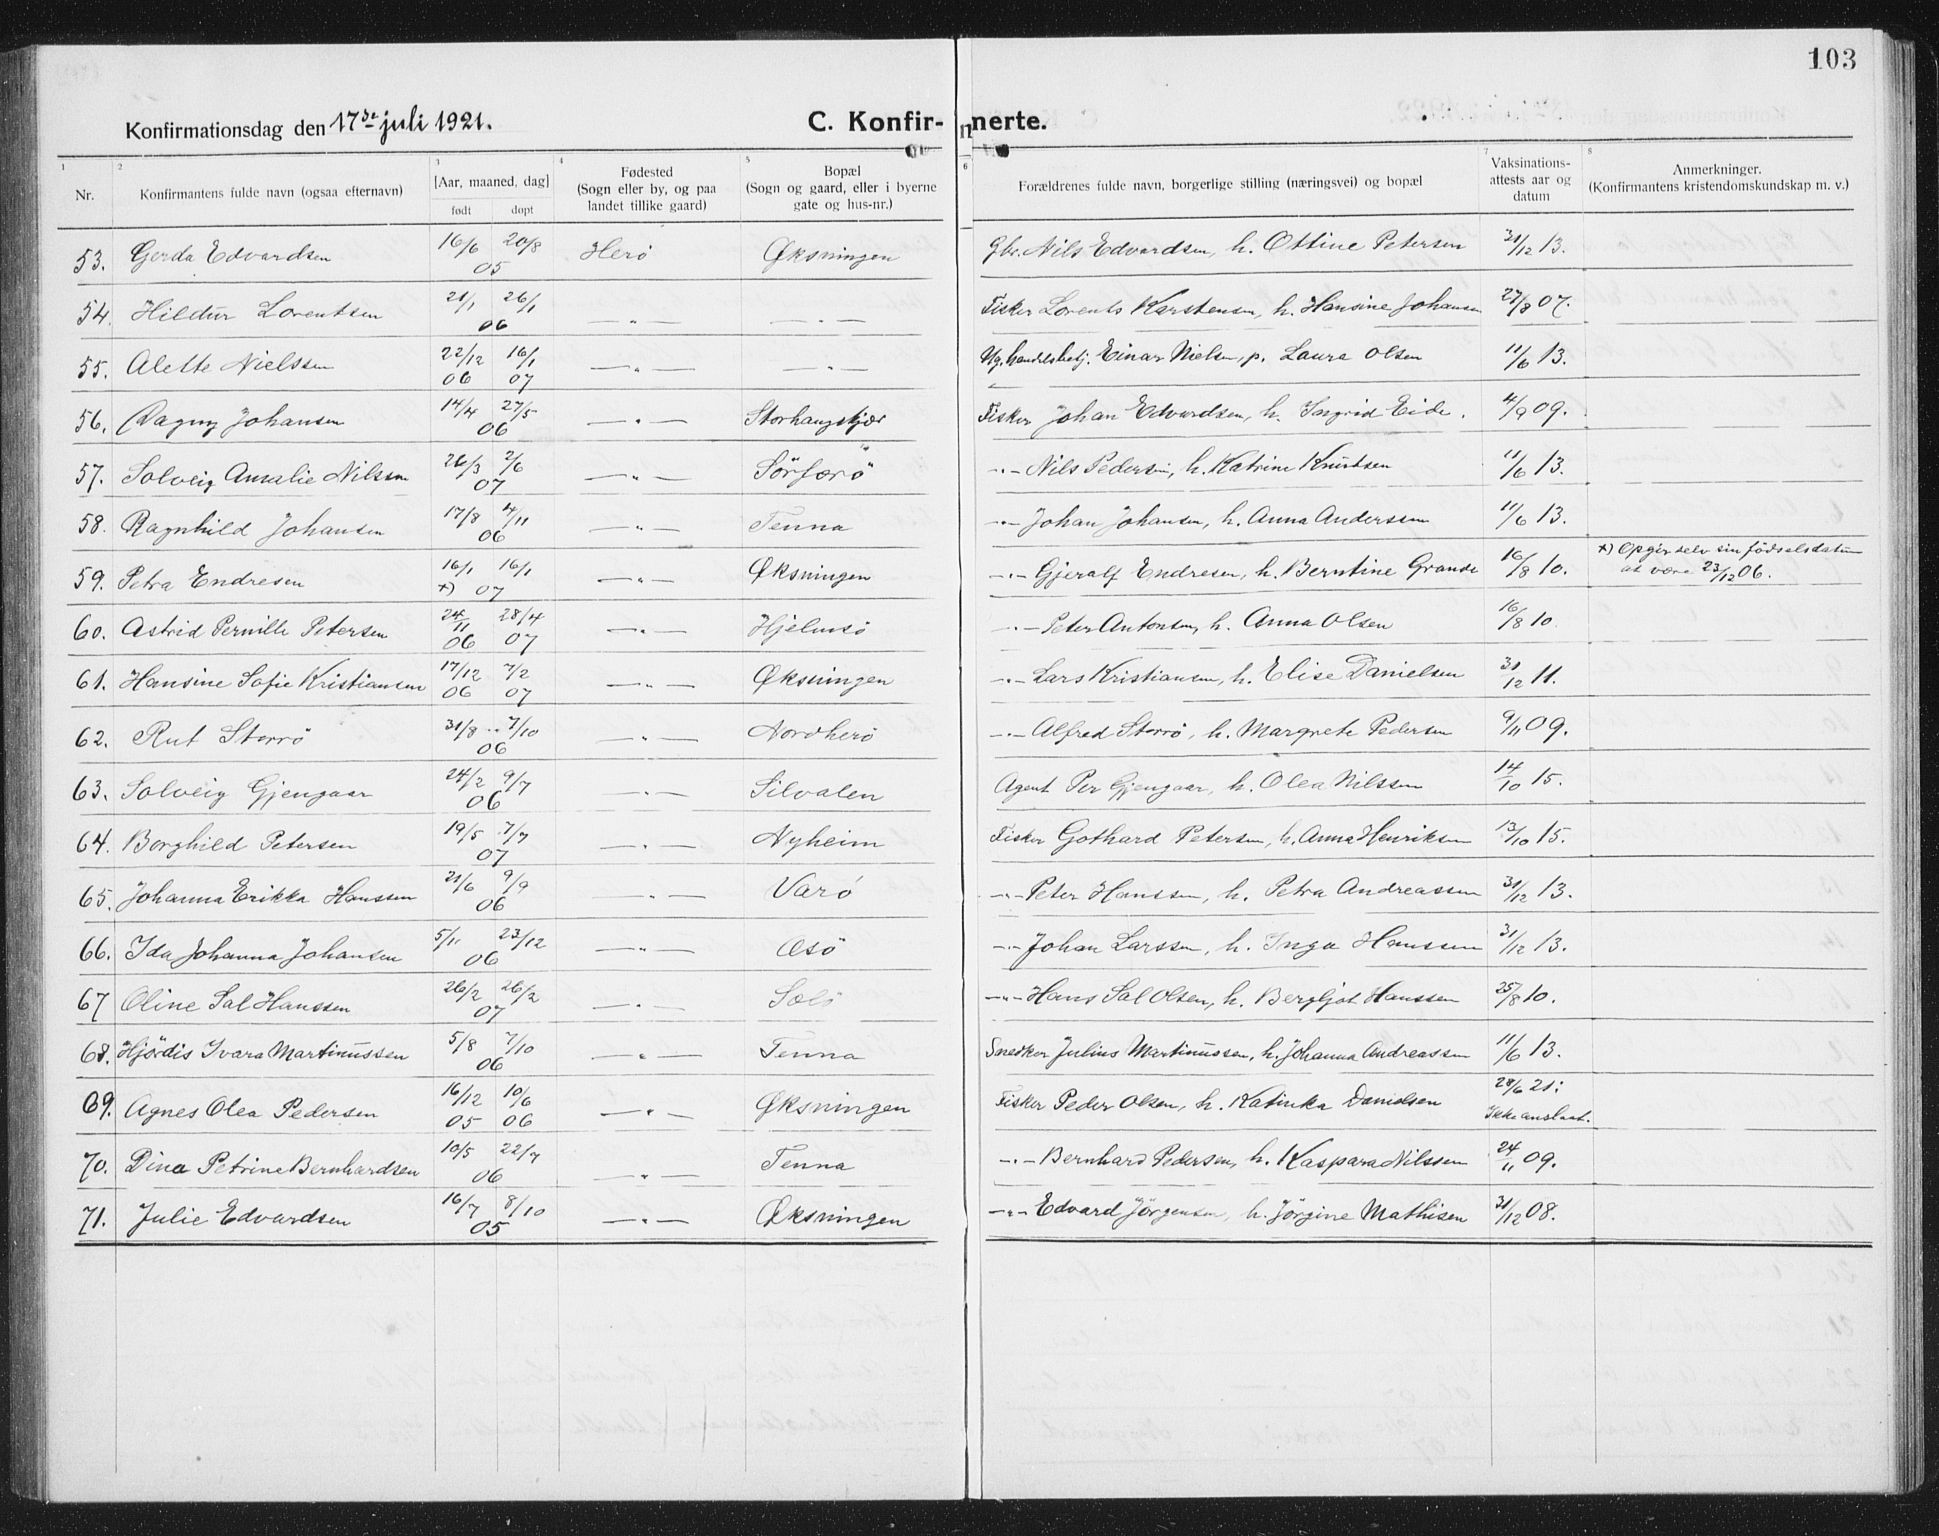 103
Konfirmationsdag den 17de juli 1921.
C. Konfir-merte.
1 2 3 4 5 6 7 8
Nr. Konfirmantens fulde navn (ogsaa efternavn) [Aar, maaned, dag] født døpt Fødested (Sogn eller by, og paa landet tillike gaard) Bopæl (Sogn og gaard, eller i byerne gate og hus-nr.) Forældrenes fulde navn, borgerlige stilling (næringsvei) og bopæl Vaksinations-attests aar og datum Anmerkninger. (Konfirmantens kristendomskundskap m. v.)
53. Gerda Edvardsen 16/6 20/8 05 Herö Øksningen Gbr. Nils Edvardsen, h. Ottine Petersen 31/12 13.
54. Hildur Lorentsen 21/1 26/1 06 —"— —"— Fisker Lorents Karstensen, h. Hansine Johansen 27/8 07.
55. Alette Nielssen 22/12 06 16/1 07 —"— —"— Ug. handelsbetj. Einar Nielsen, p. Laura Olsen 11/6 13.
56. Ragny Johansen 14/4 27/5 06 —"— Storhaugskjær Fisker Johan Edvardsen, h. Ingrid Eide. 4/9 09.
57. Solveig Amalie Nilssen 26/3 2/6 07 —"— Sörferö —"— Nils Pedersen, h. Katrine Knutsen 11/6 13.
58. Ragnhild Johansen 17/8 4/11 06 —"— Tenna —"— Johan Johansen, h. Anna Anderssen 11/6 13.
59. Petra Endresen 16/1 16/1 x) 07 —"— Øksningen —"— Gjeralf Endresen, h. Berntine Grande 16/8 10. x) Opgir selv sin födselsdatum
at være 23/12 06.
60. Astrid Pernille Petersen 24/11 06 28/4 07 —"— Hjelmsö —"— Peter Antonsen, h. Anna Olsen 16/8 10.
61. Hansine Sofie Kristiansen 17/12 06 7/2 07 —"— Øksningen —"— Lars Kristiansen, h. Elise Danielsen 31/12 11.
62. Rut Storrö 31/8 7/10 06 —"— Nordherö —"— Alfred Storrö, h. Margrete Pedersen 9/11 09.
63. Solveig Gjengaar 24/2 9/7 06 —"— Silvalen Agent Per Gjengaar, h. Olea Nilssen 14/10 15.
64. Borghild Petersen 19/5 7/7 07 —"— Nyheim Fisker Gothard Petersen, h. Anna Henriksen 13/10 15.
65. Johanna Erikka Hanssen 21/6 9/9 06 —"— Varö —"— Peter Hanssen, h. Petra Andreassen 31/12 13.
66. Ida Johanna Johansen 5/11 23/12 06 —"— Æsö —"— Johan Larssen, h. Inga Hanssen 31/12 13.
67 Oline Sal Hanssen 26/2 26/2 07 —"— Solö —"— Hans Sal Olsen, h. Bergljot Hanssen 25/8 10.
68. Hjördis Ivara Martinussen 5/8 7/10 06 —"— Tenna Snedker Julius Martinussen, h. Johanna Andreassen 11/6 13.
69. Agnes Olea Pedersen 16/12 05 10/6 06 —"— Øksningen Fisker Peder Olsen, h. Katinka Danielsen 28/6 21:
Ikke anslaat.
70. Dina Petrine Bernhardsen 10/5 22/7 06 —"— Tenna —"— Bernhard Pedersen, h. Kaspara Nilssen 24/11 09.
71. Julie Edvardsen 16/7 8/10 05 —"— Øksningen —"— Edvard Jörgensen, h. Jörgine Mathisen 31/12 08.